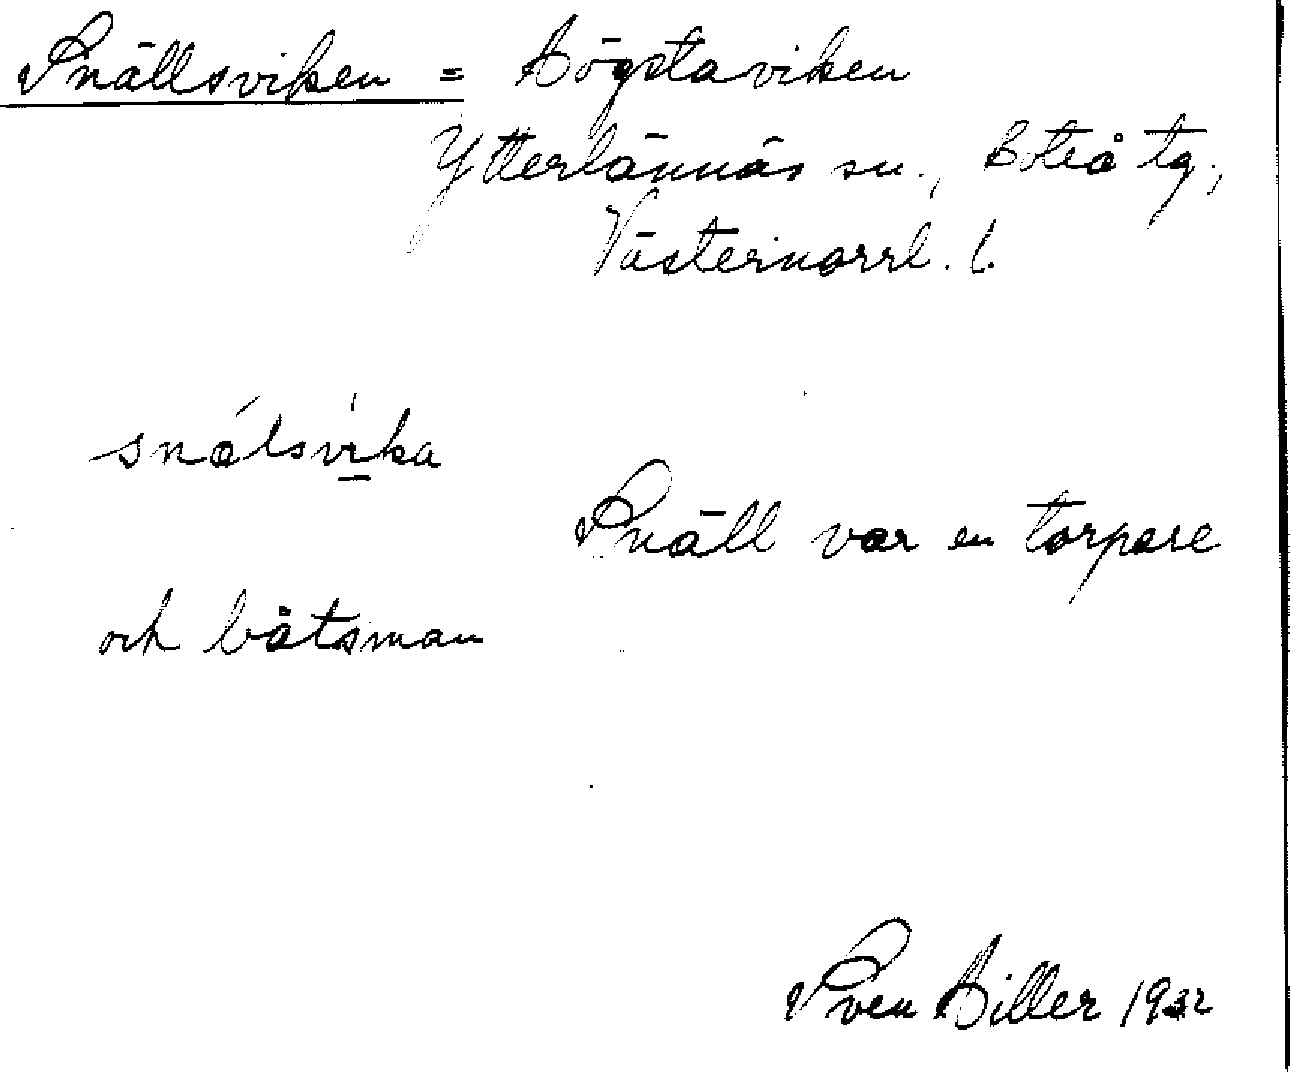 Snällsviken = Högstaviken
Ytterlännäs sn., Boteå tg.,
Västernorrl. l.
snälsvika
Snäll var en torpare
och båtsman
Sven Hiller 1932